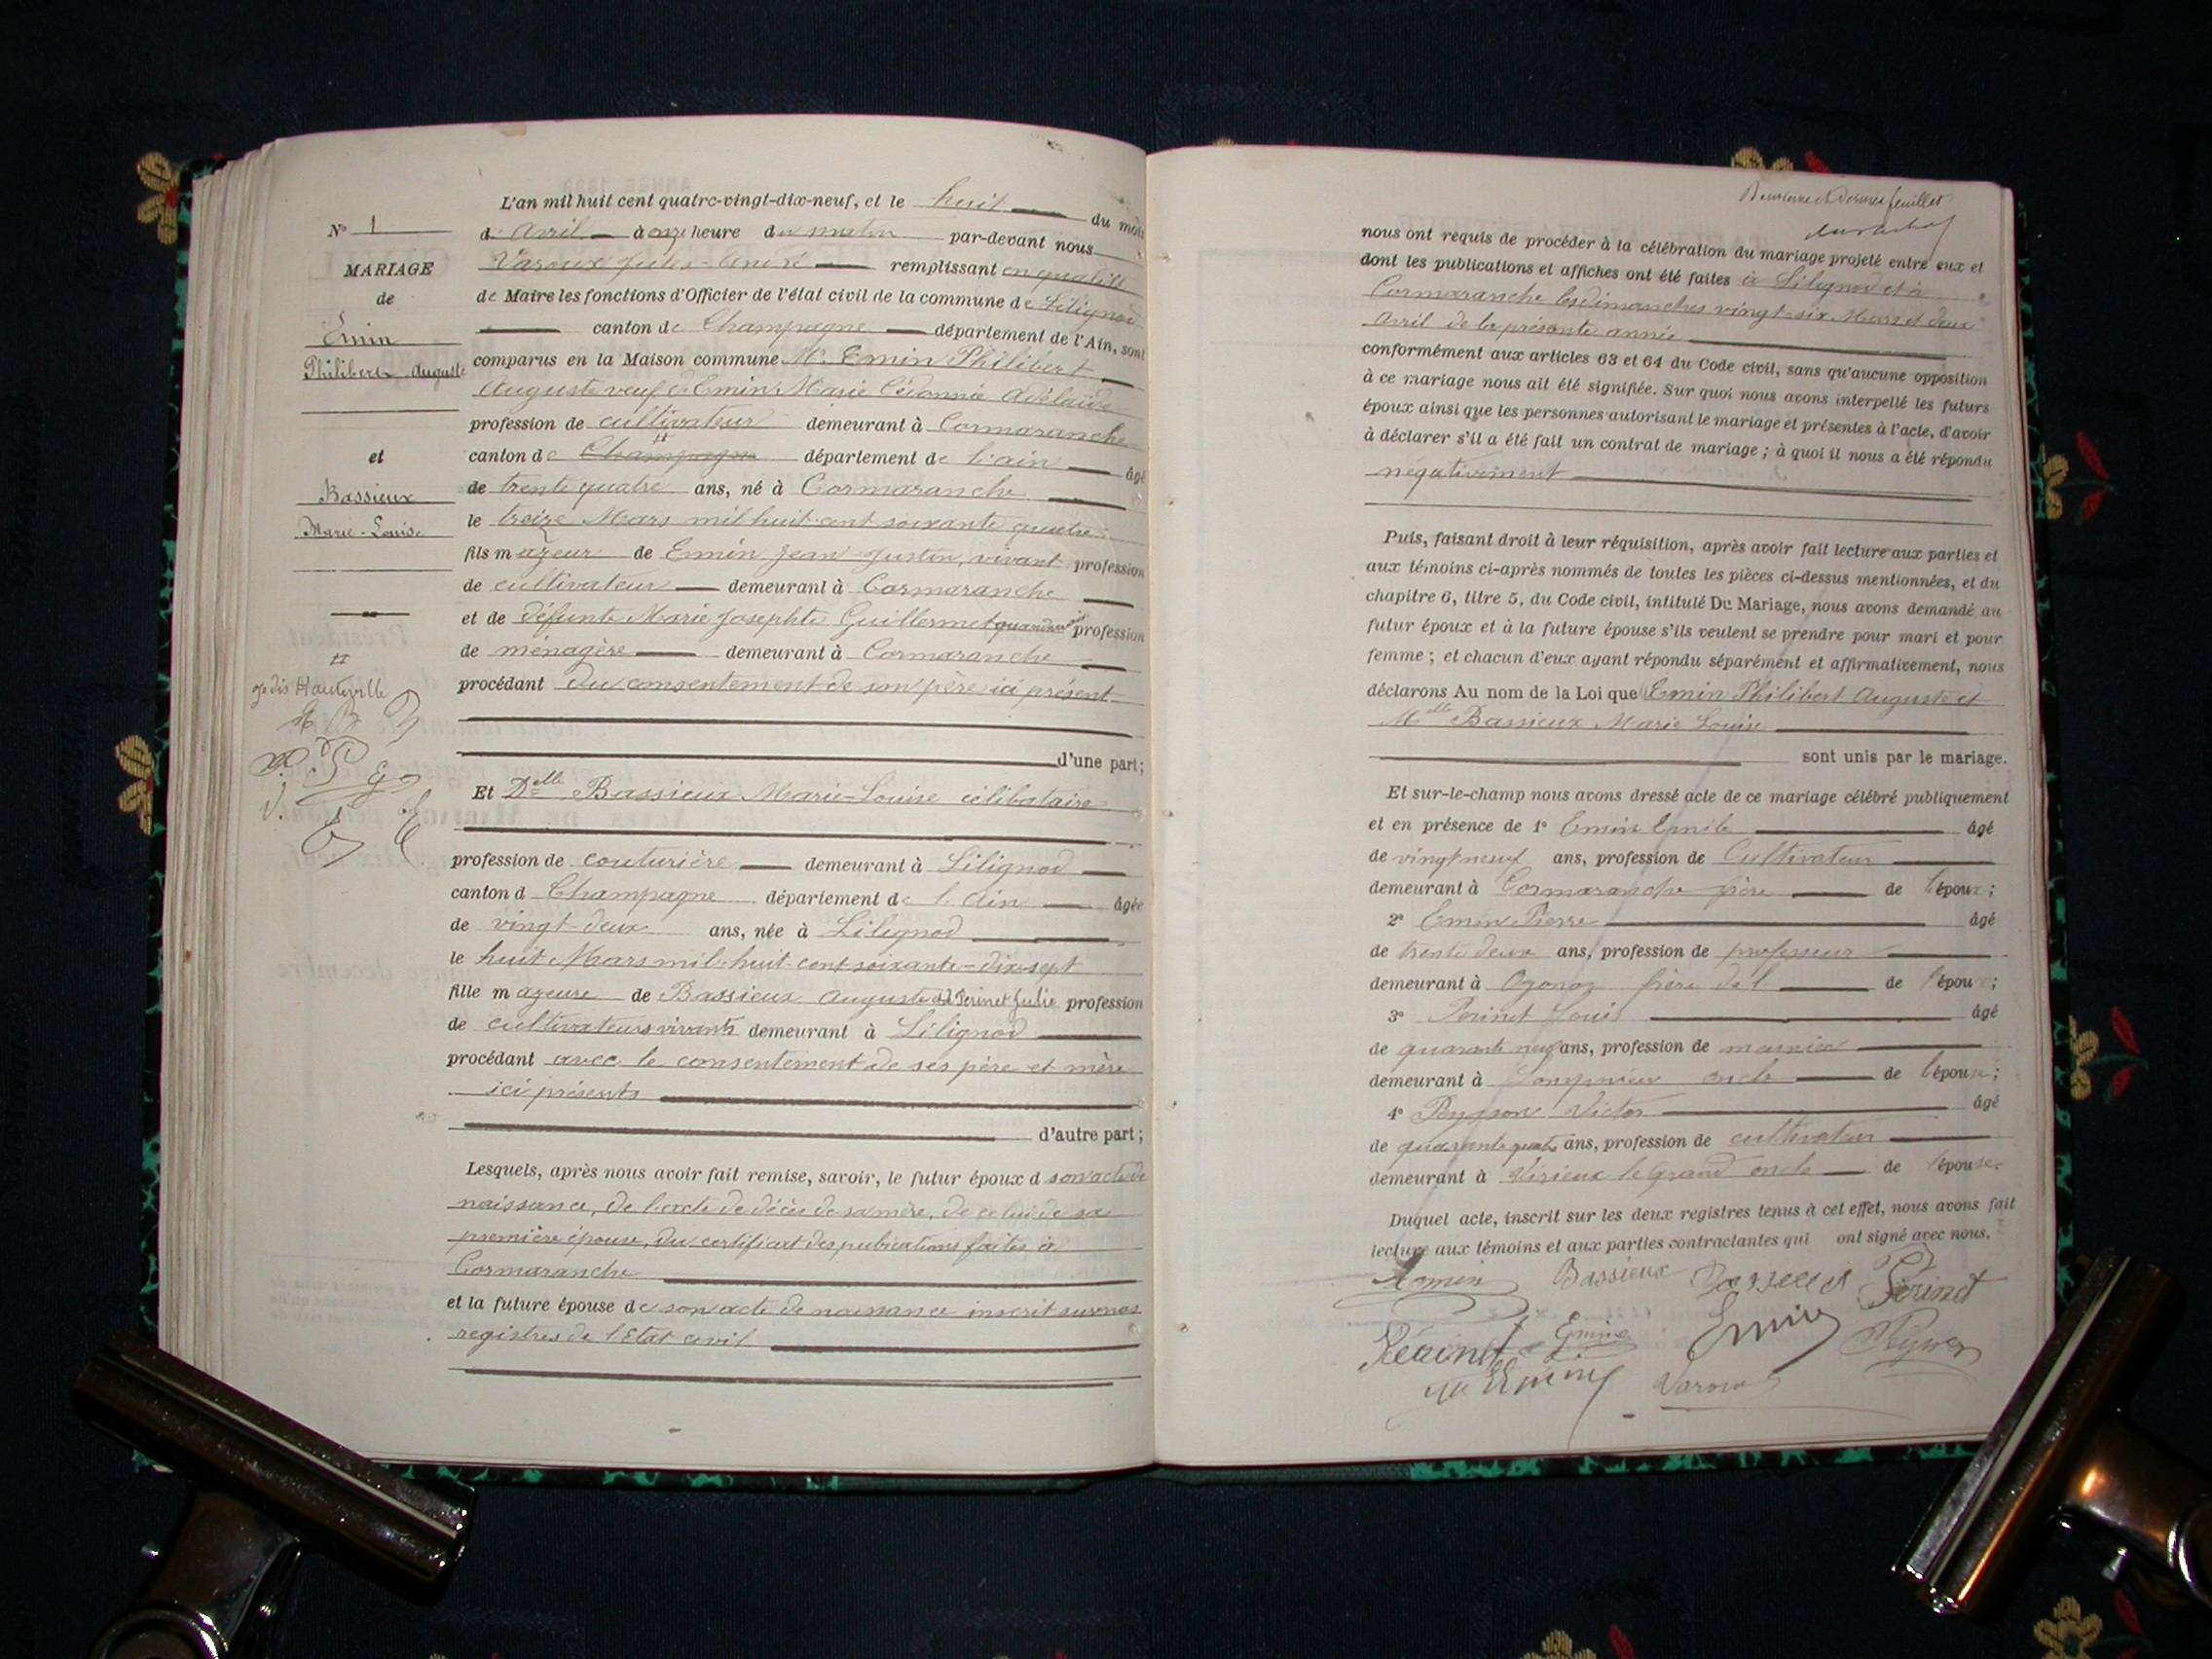 N° 1
MARIAGE
de
Emin
Philibert Auguste
et
Bassieux
Marie-Louise
je dis Hauteville
L'an mil huit cent quatre-vingt-dix-neuf, et le huit du mois
d'Avril à onze heure du matin par-devant nous
Varoux Jules-André remplissant en qualité
de Maire les fonctions d'Officier de l'état civil de la commune de Lilignod
canton de Champagne département de l'Ain, sont
comparus en la Maison commune M. Emin Philibert
Auguste veuf d'Emin Marie Adélaïde
profession de cultivateur demeurant à Cormaranche
canton de Champagne département de l'ain âgé
de trente quatre ans, né à Cormaranche
le treize Mars mil huit cent soixante quatre
fils majeur de Emin Jean-Justin, vivant profession
de cultivateur demeurant à Cormaranche
et de défunte Marie Josephte Guillermet quand vivait profession
de ménagère demeurant à Cormaranche
procédant du consentement de son père ici présent
d'une part;
Et Delle Bassieux Marie-Louise célibataire
profession de couturière demeurant à Lilignod
canton d Champagne département de l'Ain âgée
de vingt deux ans, née à Lilignod
le huit Mars mil huit cent soixante-dix-sept
fille majeure de Bassieux Auguste et Perinet Julie profession
de cultivateurs vivants demeurant à Lilignod
procédant avec le consentement de ses père et mère
ici présents
d'autre part;
Lesquels, après nous avoir fait remise, savoir, le futur époux d son acte de
naissance, de l'acte de décès de sa mère, de celui de sa
première épouse, du certificat des publications faites à
Cormaranche
et la future épouse de son acte de naissance inscrit sur nos
registres de l'Etat civil
Deuxième et dernier feuillet
nous ont requis de procéder à la célébration du mariage projeté entre eux et
dont les publications et affiches ont été faites à Lilignod et à
Cormaranche les dimanches vingt-six Mars et deux
Avril de la présente année
conformément aux articles 63 et 64 du Code civil, sans qu'aucune opposition
à ce mariage nous ait été signifiée. Sur quoi nous avons interpellé les futurs
époux ainsi que les personnes autorisant le mariage et présentes à l'acte, d'avoir
à déclarer s'il a été fait un contrat de mariage; à quoi il nous a été répondu
négativement
Puis, faisant droit à leur réquisition, après avoir fait lecture aux parties et
aux témoins ci-après nommés de toutes les pièces ci-dessus mentionnées, et du
chapitre 6, titre 5, du Code civil, intitulé Du Mariage, nous avons demandé au
futur époux et à la future épouse s'ils veulent se prendre pour mari et pour
femme; et chacun d'eux ayant répondu séparément et affirmativement, nous
déclarons Au nom de la Loi que Emin Philibert Auguste et
Melle Bassieux Marie Louise
sont unis par le mariage.
Et sur-le-champ nous avons dressé acte de ce mariage célébré publiquement
et en présence de 1° Emin Emile âgé
de vingt neuf ans, profession de Cultivateur
demeurant à Cormaranche frère de l'époux;
2° Emin Pierre âgé
de trente deux ans, profession de professeur
demeurant à Oyonax frère de l de l'époux;
3° Perinet Louis âgé
de quarante neuf ans, profession de meunier
demeurant à Songnieu oncle de l'épouse;
4° Peysson Victor âgé
de quarante quatre ans, profession de cultivateur
demeurant à Virieux le grand oncle de l'épouse
Duquel acte, inscrit sur les deux registres tenus à cet effet, nous avons fait
lecture aux témoins et aux parties contractantes qui ont signé avec nous.
Emin Bassieux Perinet
Perinet Emin Emin
Emin Varoux